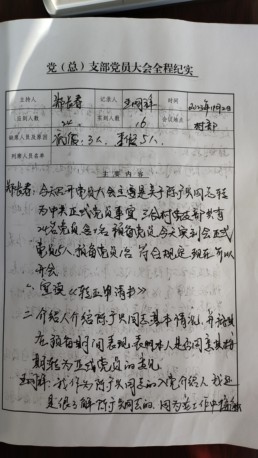 党（总）支部党员大会全程纪实
主持人 郑长春 记录人 时间 2023年11月2日
应到人数 24 实到人数 16 会议地点 村部
缺席人员及原因 病假：3人、事假5人、
列席人员名单
主要内容
郑长春：今天召开党员大会主要是关于陈 同志转
为中共正式党员事宜 村党支部共有
24名党员 预备党员 会议实到会正式
党员15人 预备党员1名 符合规定 现在可以
开会
一 宣读《转正申请书》
二 介绍人介绍陈 同志基本情况、并
在预备期间表现、表明本人是否同意其按
期转为正式党员的意见
：我作为陈 同志的入党介绍人 我还
是很了解陈 同志的、因为在工作中